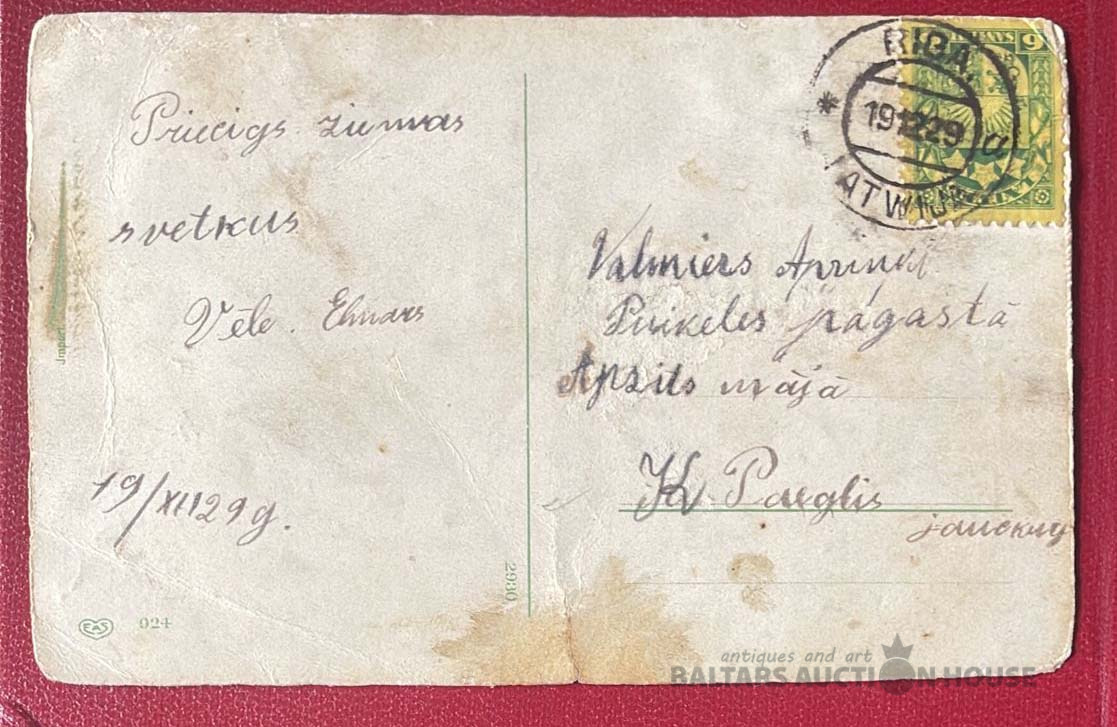 Priecigs ziemas
svetkus
Vēle. Elmars
19/XII 29 g.
EAS 924
2930
RIGA,
* 191229 a
LATWIJA
6
LATVIJA
Valmiers Apriņķī
Puikeles pagastā
Apzils mājā
K Paeglis
jaunkung
antiques and art
BALTARS AUCTION HOUSE